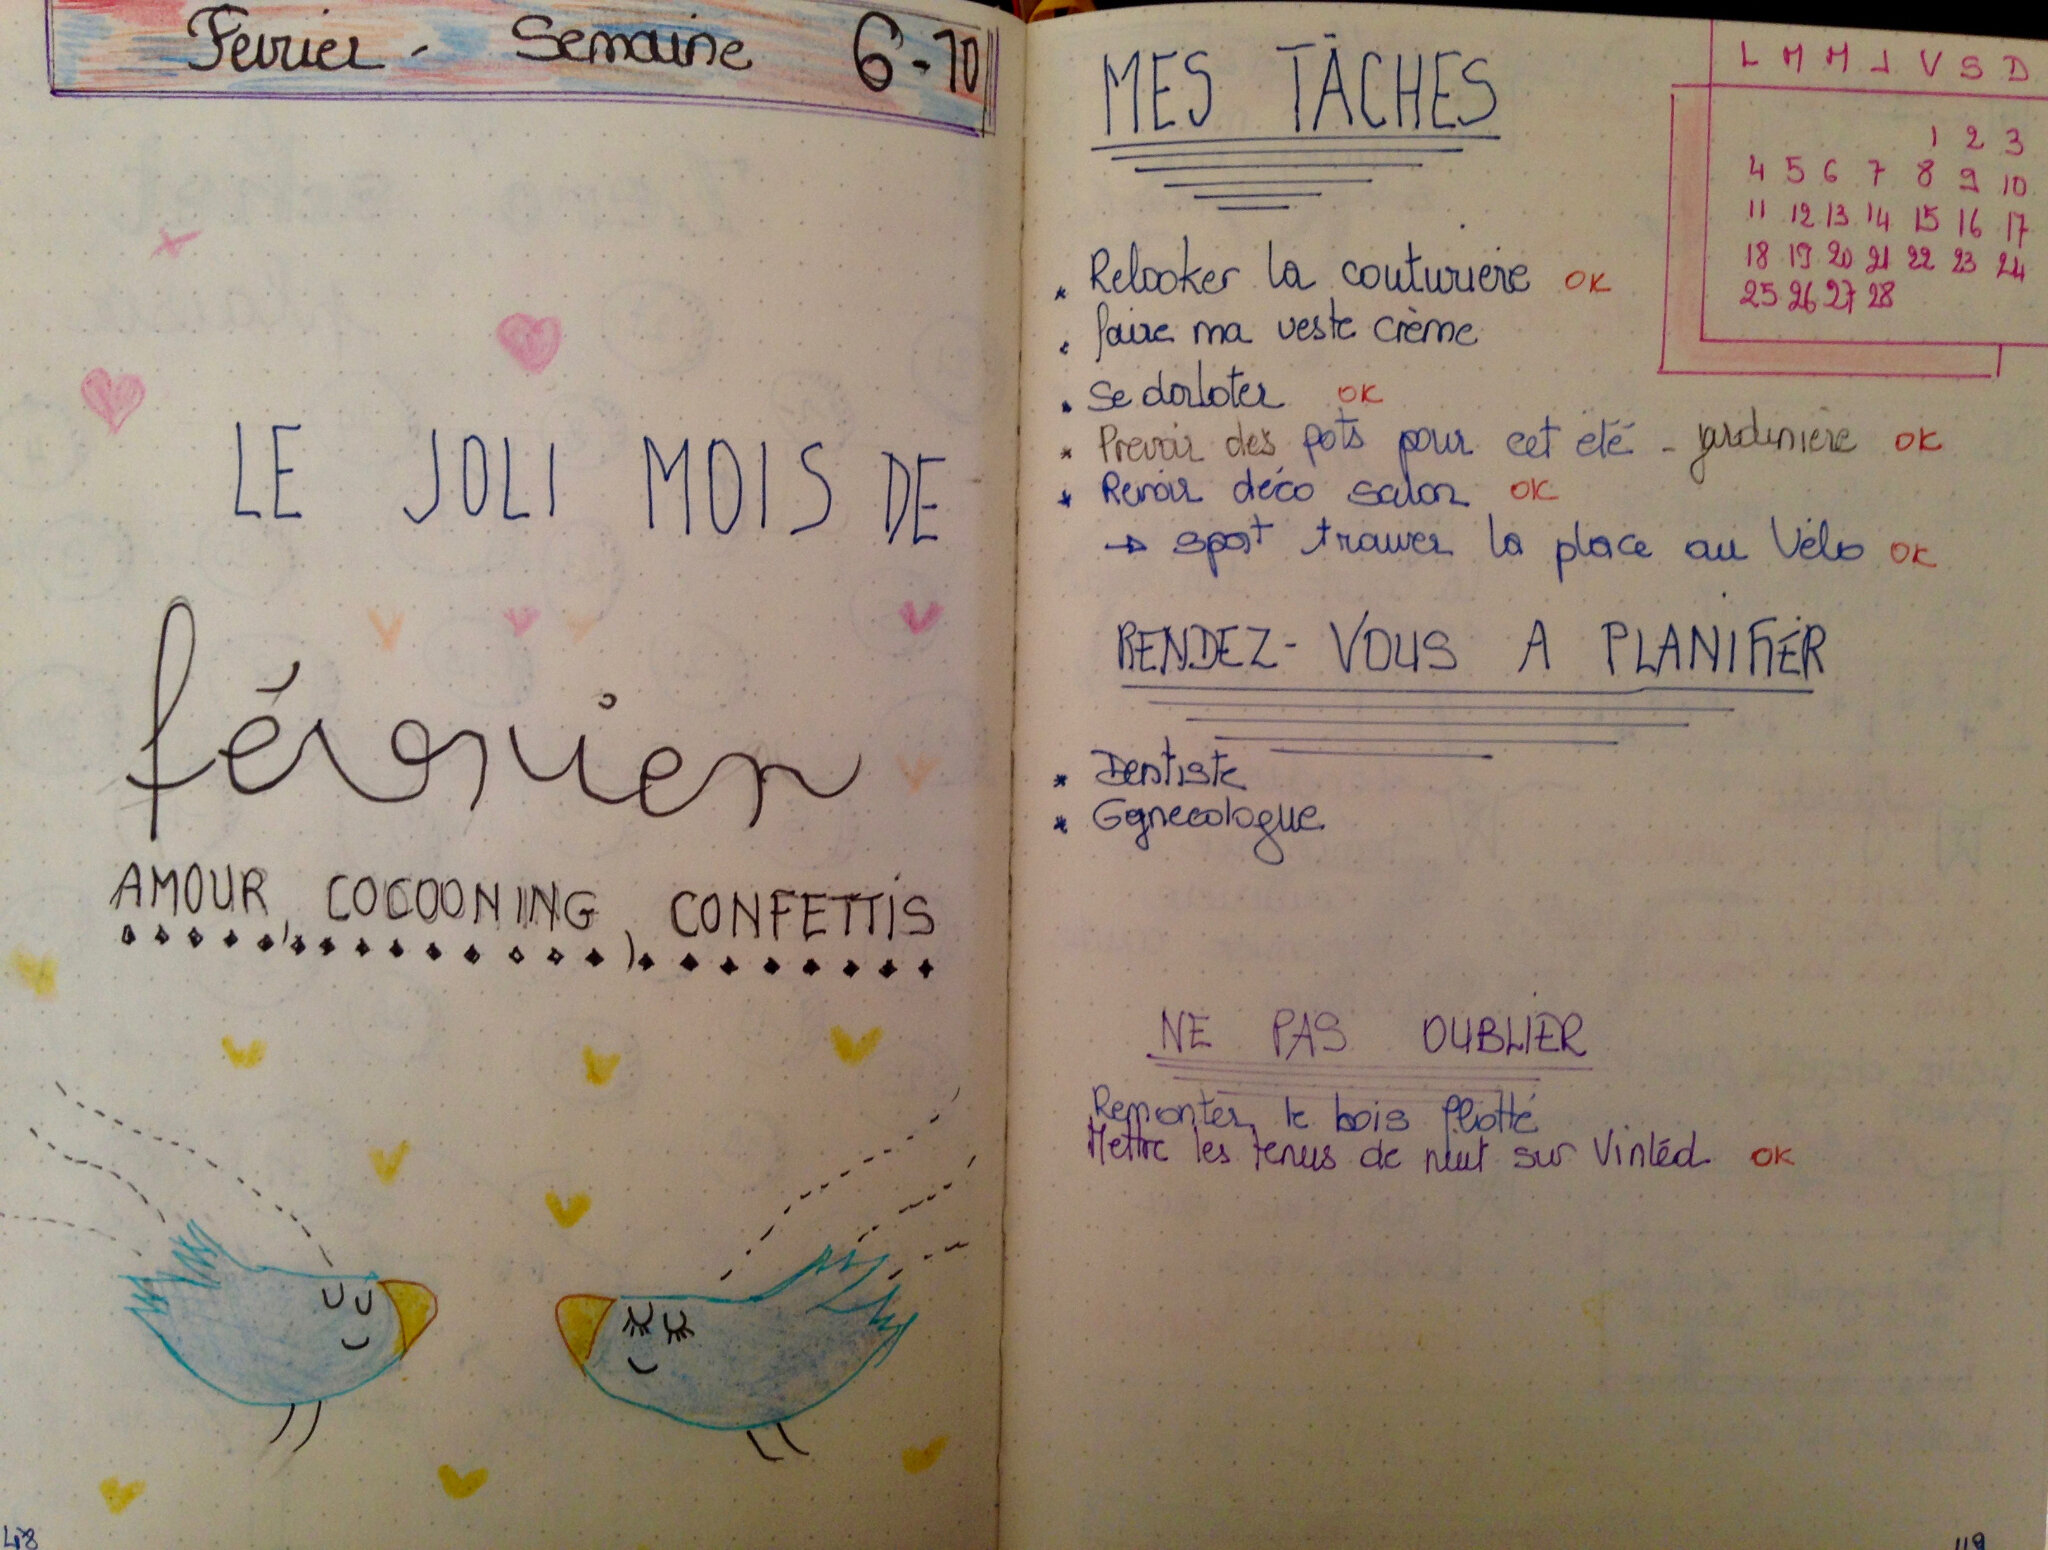 Fevrier - Semaine 6-10
LE JOLI MOIS DE
février
AMOUR, COCOONING, CONFETTIS
48
MES TÂCHES
L M M J V S D
1 2 3
4 5 6 7 8 9 10
11 12 13 14 15 16 17
18 19 20 21 22 23 24
25 26 27 28
* Relooker la couturière OK
* faire ma veste crème
* Se dorloter OK
* Prevoir des pots pour cet eté - jardinière OK
* Revoir déco salon OK
→ sport trouver la place au Vélo OK
RENDEZ-VOUS A PLANIFIER
* Dentiste
* Gynecologue
NE PAS OUBLIER
Remonter le bois flotté
Mettre les tenus de nuit sur Vinted OK